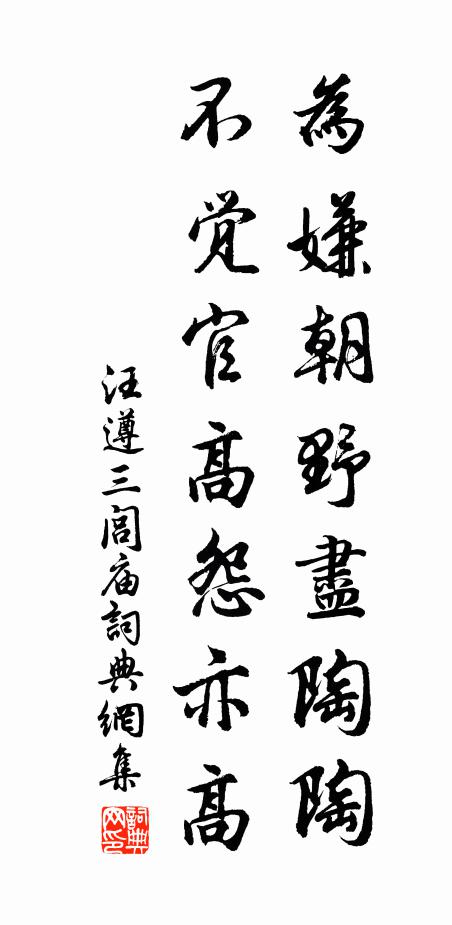 為嫌朝野盡陶陶
不覚官高怨亦高
汪遵三閭庙詞典網集
詞典网印